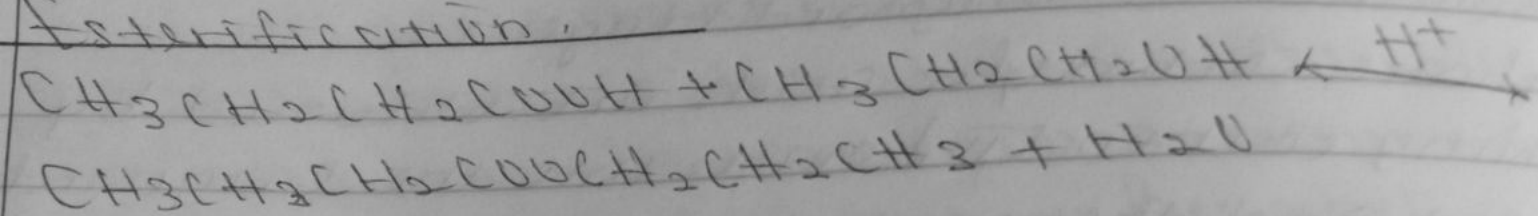 Esterification.
CH3CH2CH2COOH + CH3CH2CH2OH ⟷ H+
CH3CH3CH2COOCH2CH2CH3 + H2O